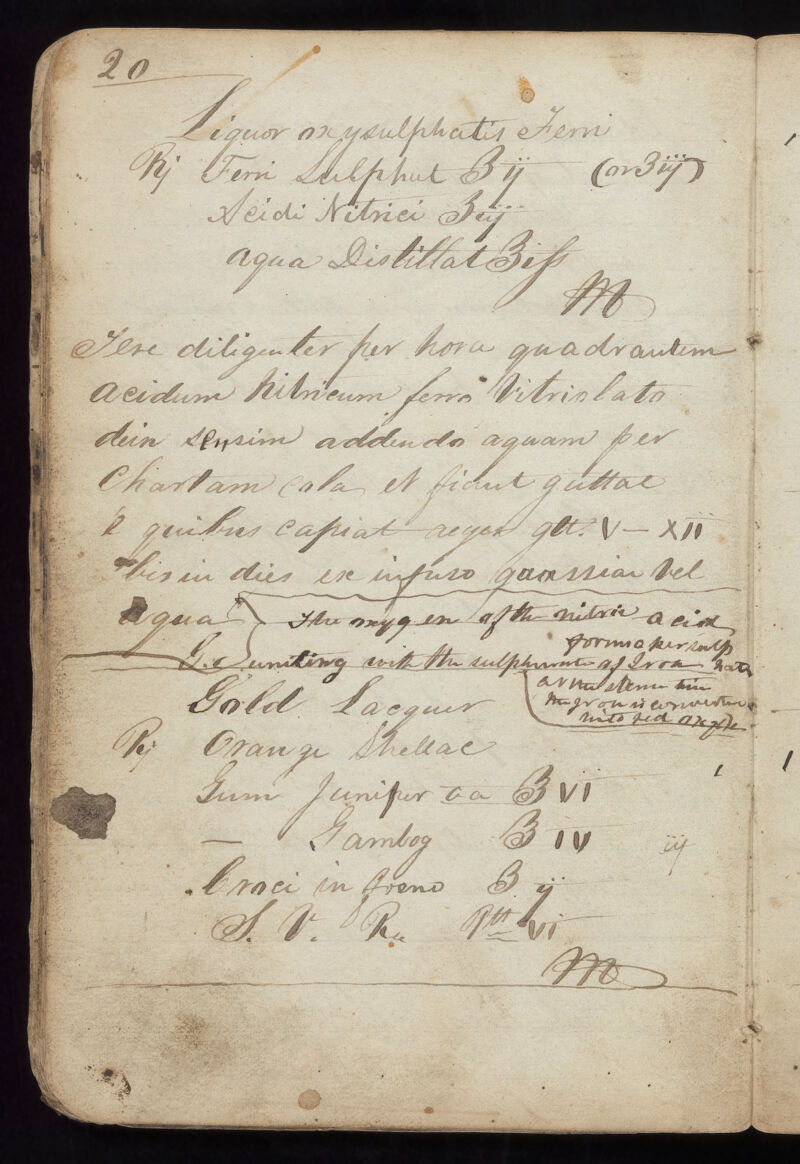 20
Liquor oxysulphatis Ferri
Rj Ferri Sulphat ʒ ij (or ʒ iij)
Acidi Nitrici ʒ iij
aqua Distillat ʒ iſs
M
Tere diligenter per hora quadrantem
acidum Nitricum ferro Vitriolato
dein sensim addendo aquam per
Chartam cola et fiant guttae
e quibus capiat aeger gtt. V – XII
bis in dies ex infuso quassiae vel
aqua } The oxygen of the nitric acid
forms a persulp
uniting with the sulphuret of Iron hate
at the same time
the Iron is converted
into red oxyde
Gold Lacquer
Rj Orange Shellac
Gum Juniper aa ʒ VI
— Gambog ʒ IV iij
Croci in foeno ʒ ij
S. V. Re VI
M